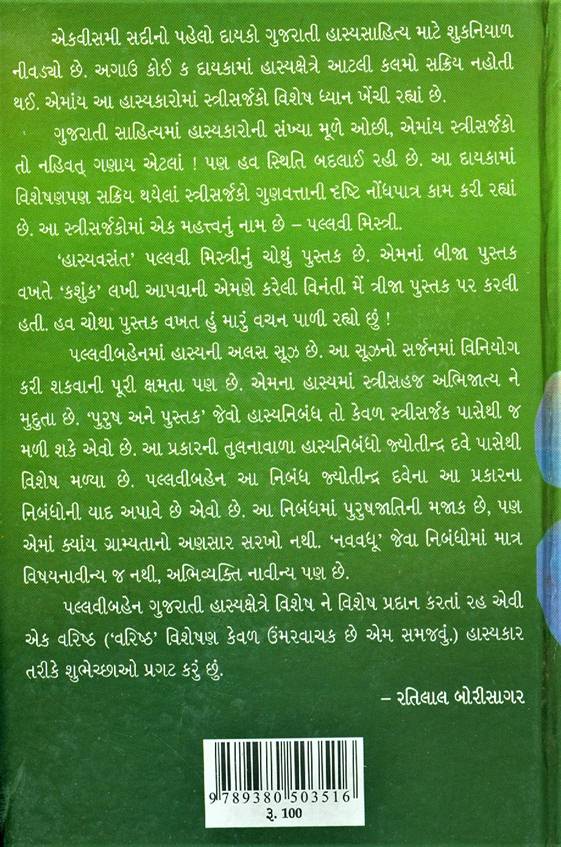 એકવીસમી સદીનો પહેલો દાયકો ગુજરાતી હાસ્યસાહિત્ય માટે શુકનિયાળ
નીવડ્યો છે. અગાઉ કોઈ ક દાયકામાં હાસ્યક્ષેત્રે આટલી કલમો સક્રિય નહોતી
થઈ. એમાંય આ હાસ્યકારોમાં સ્ત્રીસર્જકો વિશેષ ધ્યાન ખેંચી રહ્યાં છે.
ગુજરાતી સાહિત્યમાં હાસ્યકારોની સંખ્યા મૂળે ઓછી, એમાંય સ્ત્રીસર્જકો
તો નહિવત્ ગણાય એટલાં ! પણ હવ સ્થિતિ બદલાઈ રહી છે. આ દાયકામાં
વિશેષણપણ સક્રિય થયેલાં સ્ત્રીસર્જકો ગુણવત્તાની દૃષ્ટિ નોંધપાત્ર કામ કરી રહ્યાં
છે. આ સ્ત્રીસર્જકોમાં એક મહત્ત્વનું નામ છે – પલ્લવી મિસ્ત્રી.
‘હાસ્યવસંત’ પલ્લવી મિસ્ત્રીનું ચોથું પુસ્તક છે. એમનાં બીજા પુસ્તક
વખતે ‘કશુંક’ લખી આપવાની એમણે કરેલી વિનંતી મેં ત્રીજા પુસ્તક પર કરલી
હતી. હવ ચોથા પુસ્તક વખત હું મારું વચન પાળી રહ્યો છું !
પલ્લવીબહેનમાં હાસ્યની અલસ સૂઝ છે. આ સૂઝનો સર્જનમાં વિનિયોગ
કરી શકવાની પૂરી ક્ષમતા પણ છે. એમના હાસ્યમાં સ્ત્રીસહજ અભિજાત્ય ને
મુદુતા છે. ‘પુરુષ અને પુસ્તક’ જેવો હાસ્યનિબંધ તો કેવળ સ્ત્રીસર્જક પાસેથી જ
મળી શકે એવો છે. આ પ્રકારની તુલનાવાળા હાસ્યનિબંધો જ્યોતીન્દ્ર દવે પાસેથી
વિશેષ મળ્યા છે. પલ્લવીબહેન આ નિબંધ જ્યોતીન્દ્ર દવેના આ પ્રકારના
નિબંધોની યાદ અપાવે છે એવો છે. આ નિબંધમાં પુરુષજાતિની મજાક છે, પણ
એમાં ક્યાંય ગ્રામ્યતાનો અણસાર સરખો નથી. ‘નવવધૂ’ જેવા નિબંધોમાં માત્ર
વિષયનાવીન્ય જ નથી, અભિવ્યક્તિ નાવીન્ય પણ છે.
પલ્લવીબહેન ગુજરાતી હાસ્યક્ષેત્રે વિશેષ ને વિશેષ પ્રદાન કરતાં રહ એવી
એક વરિષ્ઠ (‘વરિષ્ઠ’ વિશેષણ કેવળ ઉંમરવાચક છે એમ સમજવું.) હાસ્યકાર
તરીકે શુભેચ્છાઓ પ્રગટ કરું છું.
– રતિલાલ બોરીસાગર
9 789380 503516
રૂ. 100